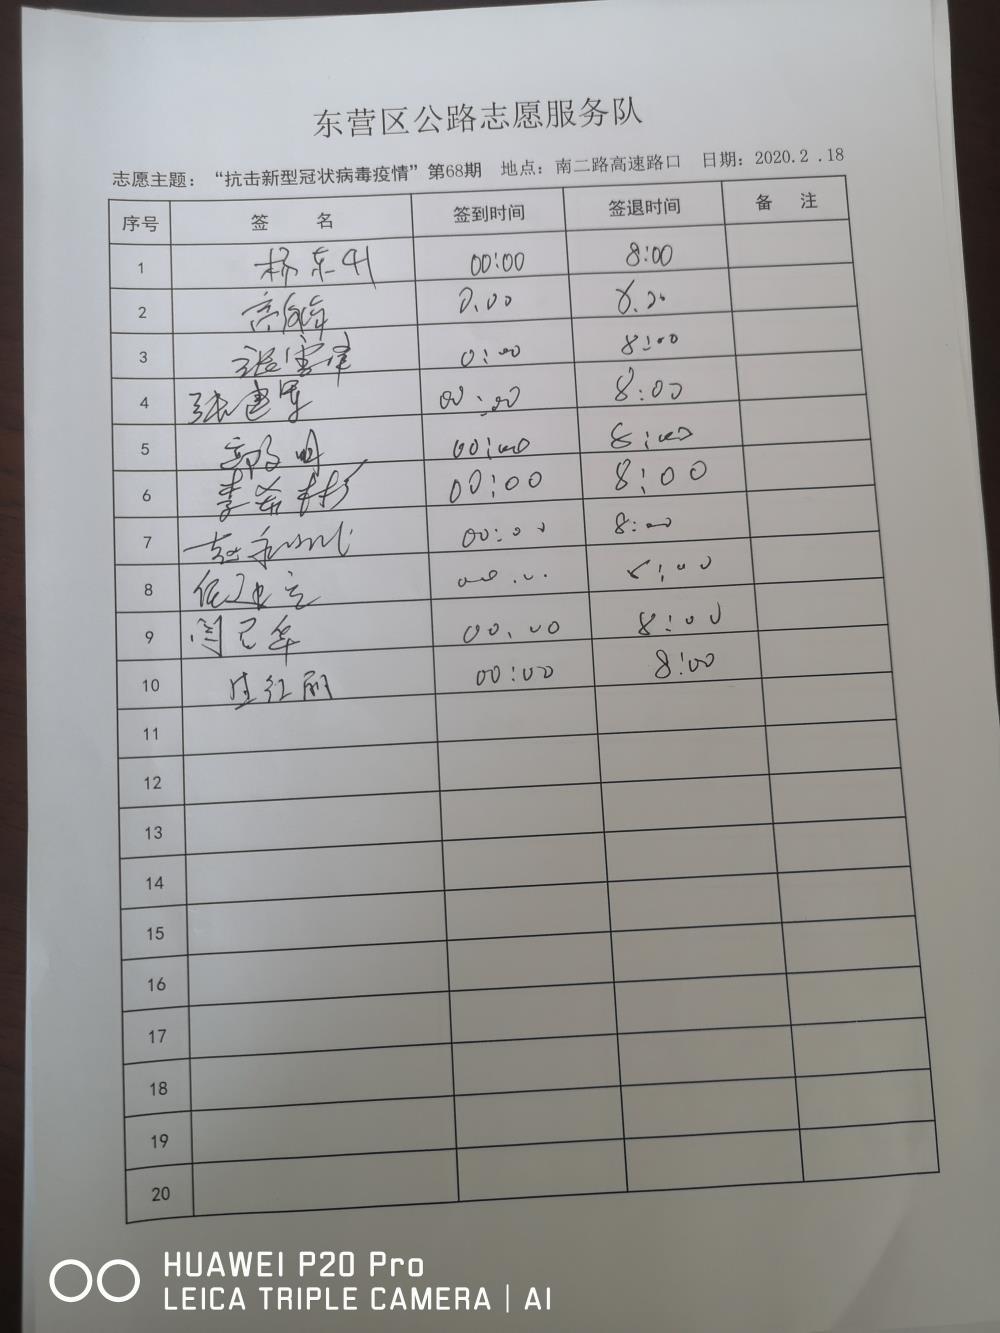 东营区公路志愿服务队
志愿主题：“抗击新型冠状病毒疫情”第68期 地点：南二路高速路口 日期：2020.2.18
序号 签 名 签到时间 签退时间 备 注
1 杨东升 00:00 8:00
2 0.00 8.00
3 0:00 8:00
4 张建军 00:00 8:00
5 00:00 8:00
6 00:00 8:00
7 00:00 8:00
8 00:00 8:00
9 00.00 8:00
10 红丽 00:00 8:00
11
12
13
14
15
16
17
18
19
20
HUAWEI P20 Pro
LEICA TRIPLE CAMERA | AI